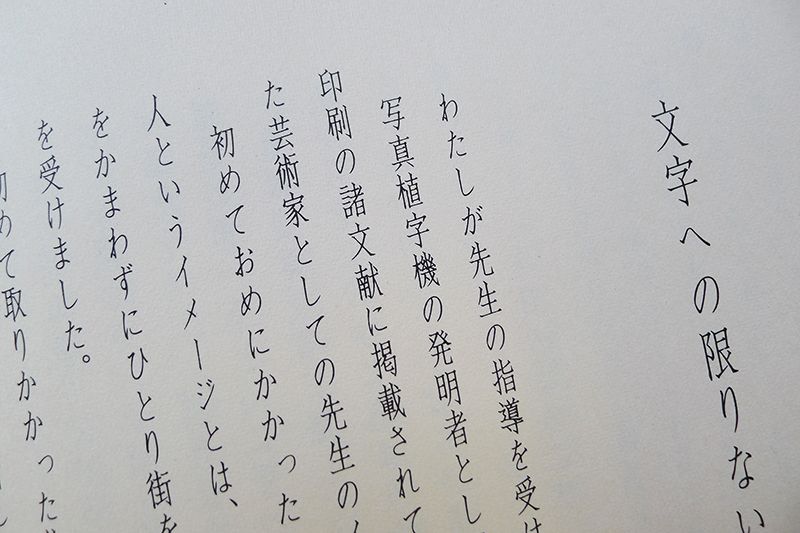 文字への限りない
わたしが先生の指導を受け
写真植字機の発明者とし
印刷の諸文献に掲載されて
た芸術家としての先生の
初めておめにかかった
人というイメージとは、
をかまわずにひとり街を
を受けました。
初めて取りかかった